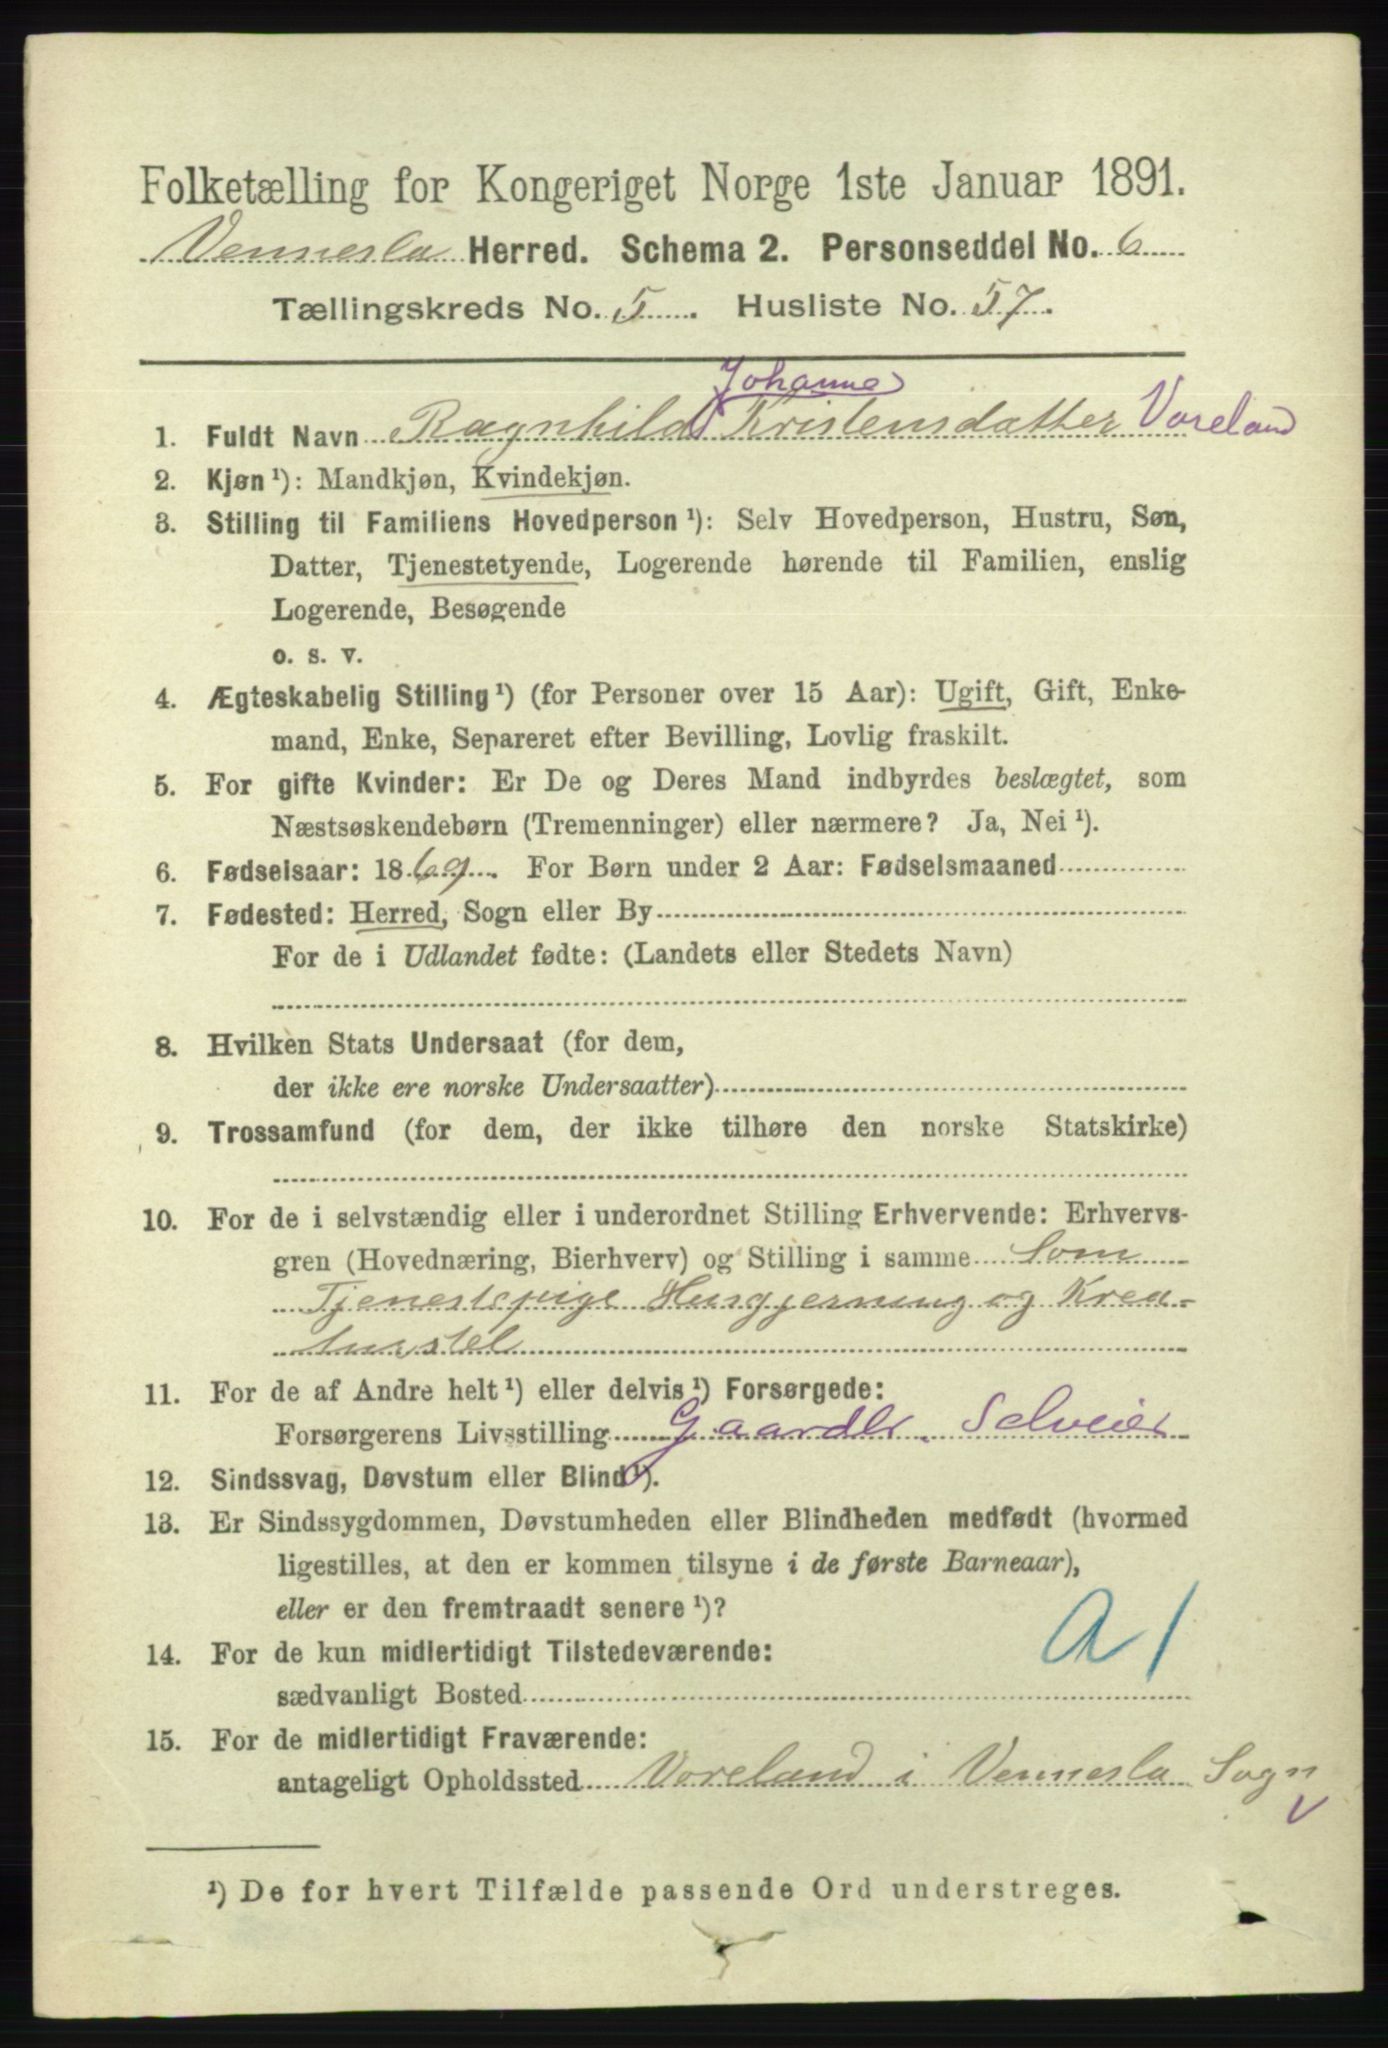 Folketælling for Kongeriget Norge 1ste Januar 1891.
Vennesla Herred. Schema 2. Personseddel No. 6
Tællingskreds No. 5. Husliste No. 57.
Johanne
1. Fuldt Navn Ragnhild Kristensdatter Voreland
2. Kjøn ¹): Mandkjøn, Kvindekjøn.
3. Stilling til Familiens Hovedperson ¹): Selv Hovedperson, Hustru, Søn,
Datter, Tjenestetyende, Logerende hørende til Familien, enslig
Logerende, Besøgende
o. s. v.
4. Ægteskabelig Stilling ¹) (for Personer over 15 Aar): Ugift, Gift, Enke-
mand, Enke, Separeret efter Bevilling, Lovlig fraskilt.
5. For gifte Kvinder: Er De og Deres Mand indbyrdes beslægtet, som
Næstsøskendebørn (Tremenninger) eller nærmere? Ja, Nei ¹).
6. Fødselsaar: 1869. For Børn under 2 Aar: Fødselsmaaned
7. Fødested: Herred, Sogn eller By
For de i Udlandet fødte: (Landets eller Stedets Navn)
8. Hvilken Stats Undersaat (for dem,
der ikke ere norske Undersaatter)
9. Trossamfund (for dem, der ikke tilhøre den norske Statskirke)
10. For de i selvstændig eller i underordnet Stilling Erhvervende: Erhvervs-
gren (Hovednæring, Bierhverv) og Stilling i samme Som
Tjenestepige Husgjerning og Krea-
turstel
11. For de af Andre helt ¹) eller delvis ¹) Forsørgede:
Forsørgerens Livsstilling Gaardbr. Selveier
12. Sindssvag, Døvstum eller Blind ¹).
13. Er Sindssygdommen, Døvstumheden eller Blindheden medfødt (hvormed
ligestilles, at den er kommen tilsyne i de første Barneaar),
eller er den fremtraadt senere ¹)?
a 1
14. For de kun midlertidigt Tilstedeværende:
sædvanligt Bosted
15. For de midlertidigt Fraværende:
antageligt Opholdssted Voreland i Vennesla Sogn
¹) De for hvert Tilfælde passende Ord understreges.